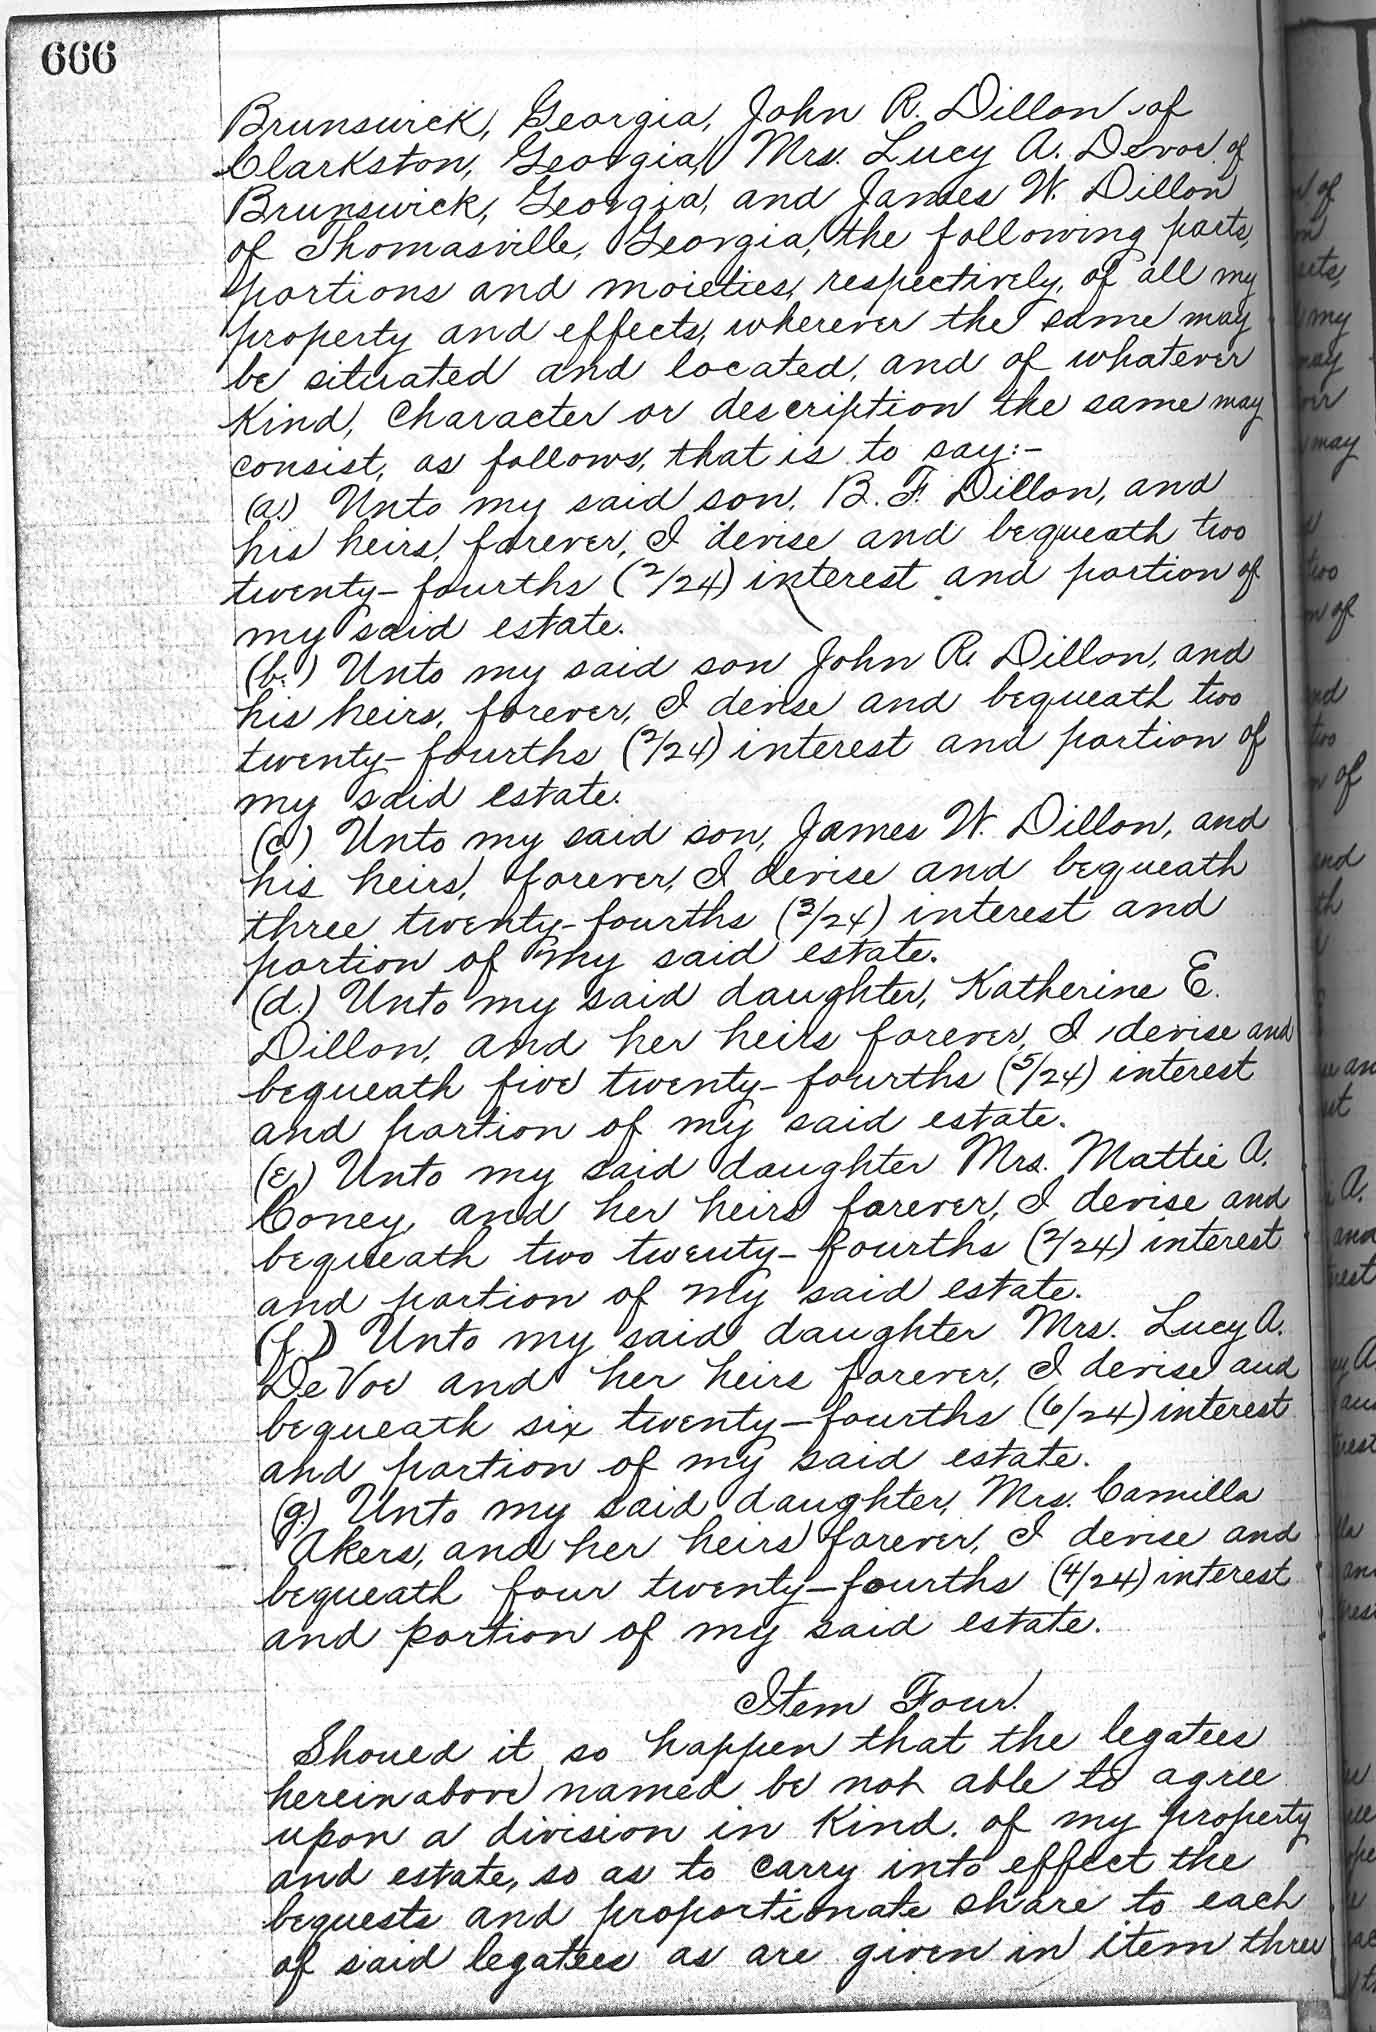 666
Brunswick, Georgia, John R. Dillon of
Clarkston, Georgia, Mrs. Lucy A. Devoe of
Brunswick, Georgia, and James W. Dillon
of Thomasville, Georgia, the following parts,
portions and moieties, respectively, of all my
property and effects, wherever the same may
be situated and located, and of whatever
Kind, Character or description the same may
consist, as follows, that is to say:-
(a.) Unto my said son, B. F. Dillon, and
his heirs, forever, I devise and bequeath two
twenty-fourths (2/24) interest and portion of
my said estate.
(b.) Unto my said son John R. Dillon, and
his heirs, forever, I devise and bequeath two
twenty-fourths (2/24) interest and portion of
my said estate.
(c.) Unto my said son, James W. Dillon, and
his heirs, forever, I devise and bequeath
three twenty-fourths (3/24) interest and
portion of my said estate.
(d.) Unto my said daughter, Katherine E.
Dillon, and her heirs forever, I devise and
bequeath five twenty-fourths (5/24) interest
and portion of my said estate.
(e.) Unto my said daughter Mrs. Mattie A.
Coney, and her heirs forever, I devise and
bequeath two twenty-fourths (2/24) interest
and portion of my said estate.
(f.) Unto my said daughter Mrs. Lucy A.
DeVoe and her heirs forever, I devise and
bequeath six twenty-fourths (6/24) interest
and portion of my said estate.
(g.) Unto my said daughter, Mrs. Camilla
Akers, and her heirs forever, I devise and
bequeath four twenty-fourths (4/24) interest
and portion of my said estate.
Item Four.
Shoued it so happen that the legatees
herein above named be not able to agree
upon a division in Kind. of my property
and estate, so as to carry into effect the
bequests and proportionate share to each
of said legatees as are given in item three